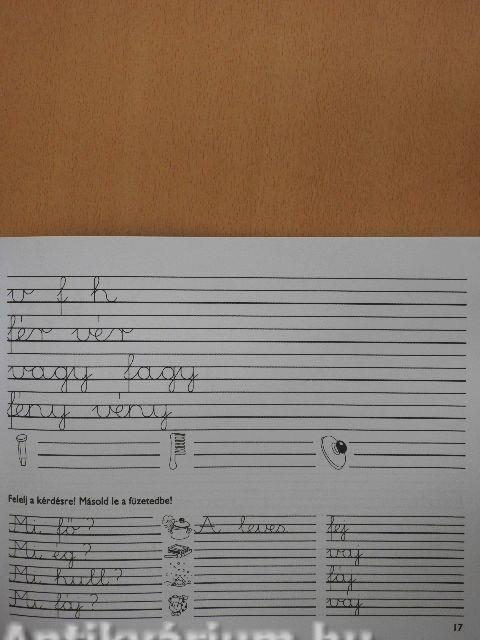 v f h
fér vér
vagy fagy
fény vény
Felelj a kérdésre! Másold le a füzetedbe!
Mi fő? A leves fej
Mi ég? vaj
Mi hull? fáj
Mi fáj? vaj
17
Antikvárium.hu